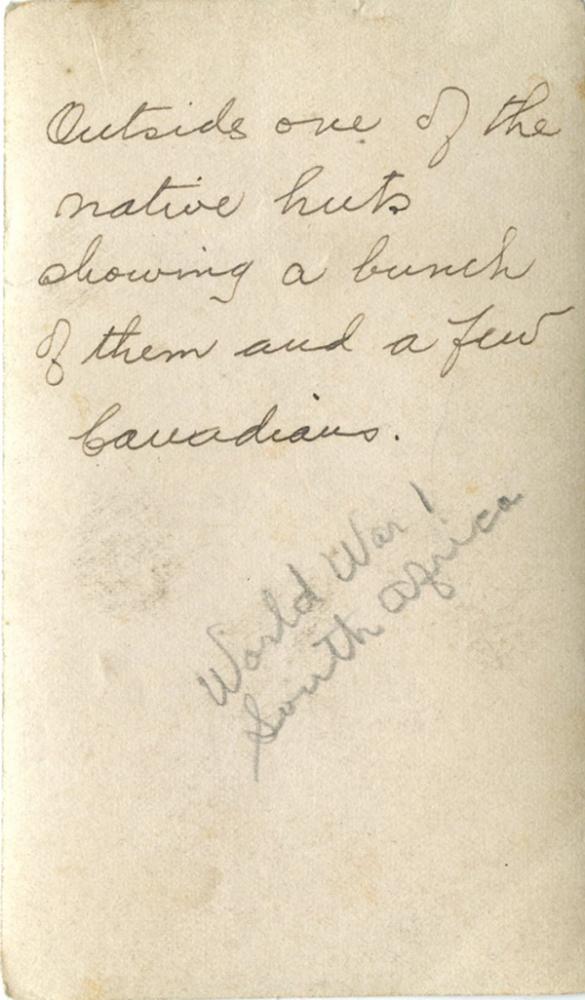 Outside one of the
native huts
showing a bunch
of them and a few
Canadians.
World War 1
South Africa